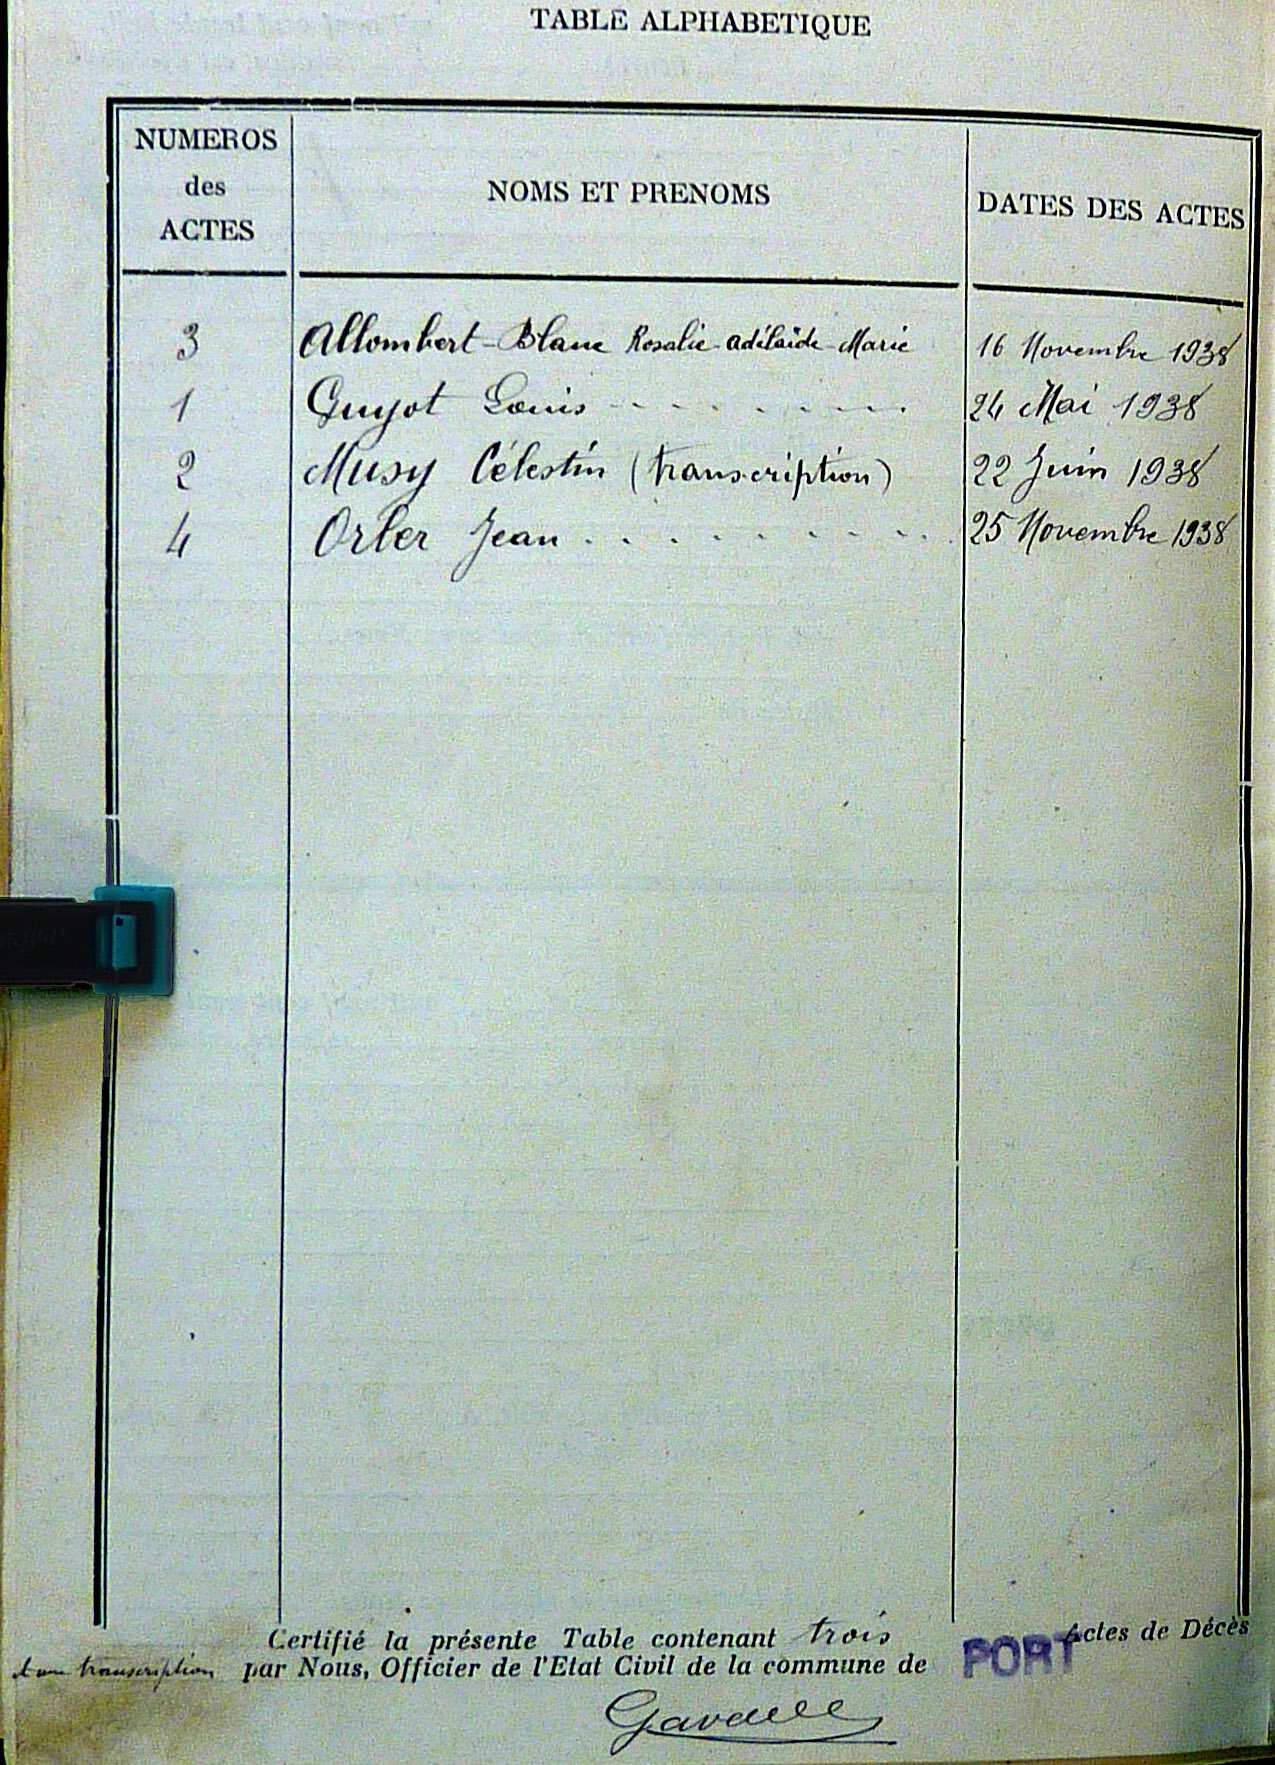 TABLE ALPHABETIQUE
NUMEROS des ACTES NOMS ET PRENOMS DATES DES ACTES
3 Allombert-Blanc Rosalie-Adélaïde-Marie 16 Novembre 1938
1 Guyot Louis - - - - - - - - 24 Mai 1938
2 Musy Célestin (transcription) 22 Juin 1938
4 Orler Jean . . . . . . . . . 25 Novembre 1938
Certifié la présente Table contenant trois Actes de Décès
et une transcription par Nous, Officier de l'Etat Civil de la commune de PORT